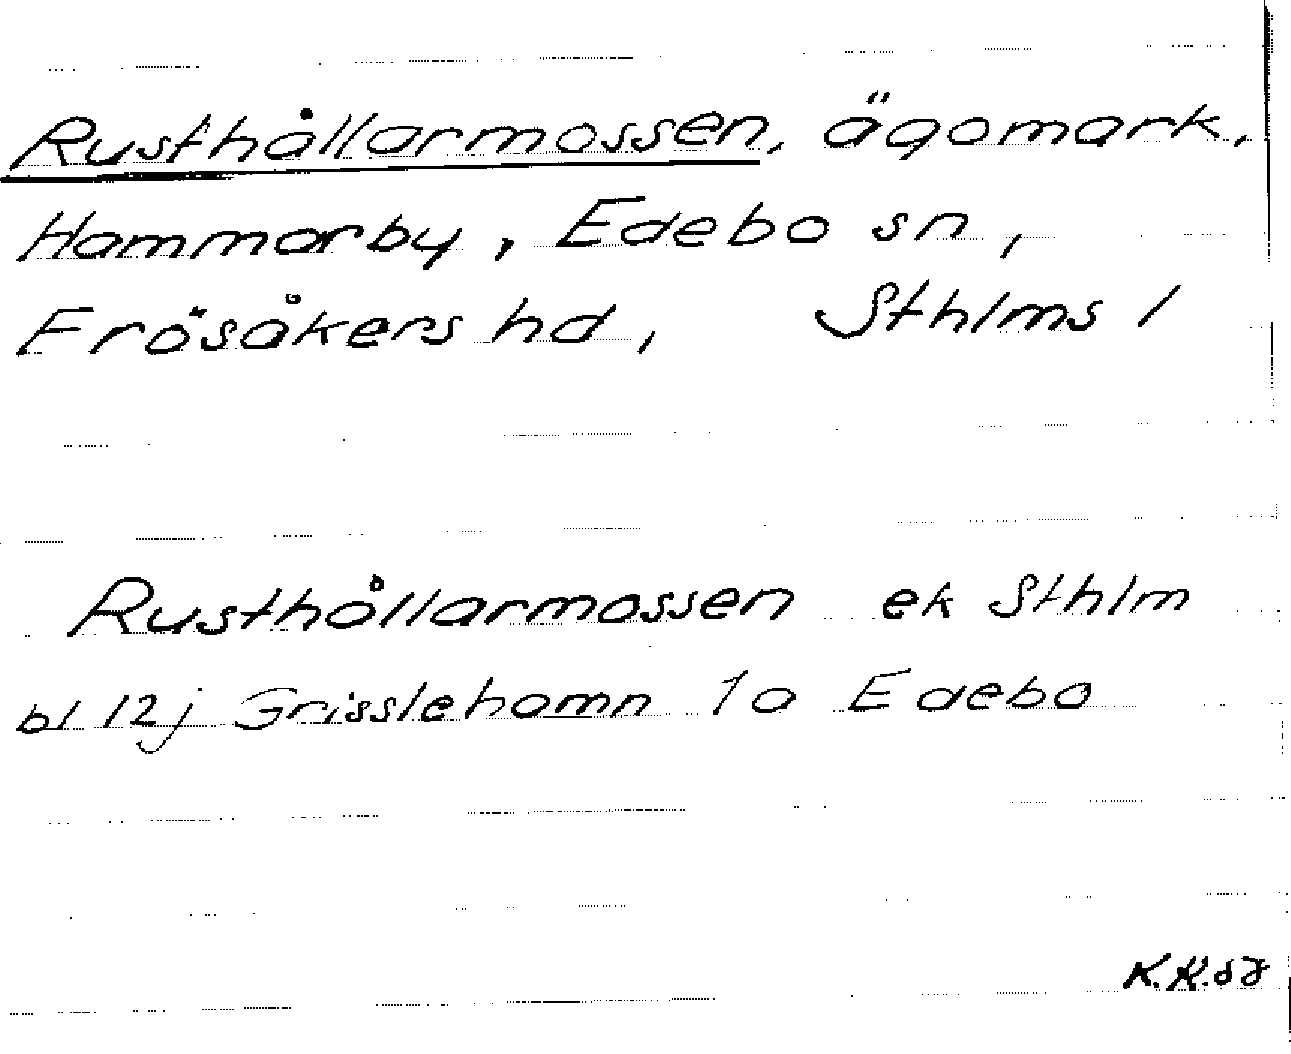 Rusthållarmossen, ägomark,
Hammarby, Edebo sn,
Frösåkers hd, Sthlms l
Rusthållarmossen ek Sthlm
bl 12j Grisslehamn 1a Edebo
K.K.